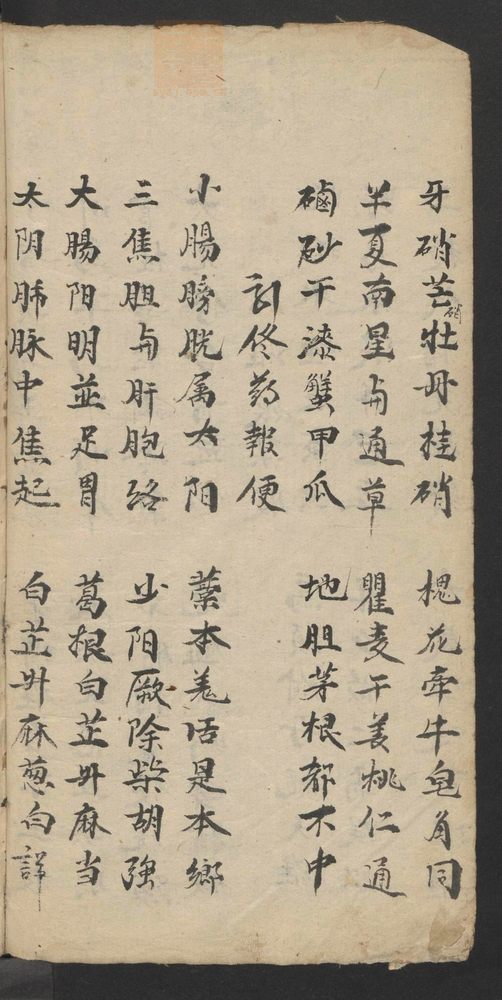 牙硝芒硝牡丹桂硝 槐花牵牛皂角同
半夏南星与通草 瞿麦干姜桃仁通
硇砂干漆蟹甲爪 地胆茅根都不中
引佟药報便
小腸膀胱属太阳 藁本羌活是本鄉
三焦胆与肝胞络 少阳厥除柴胡强
大腸阳明並足胃 葛根白芷升麻当
太阴肺脉中焦起 白芷升麻葱白詳